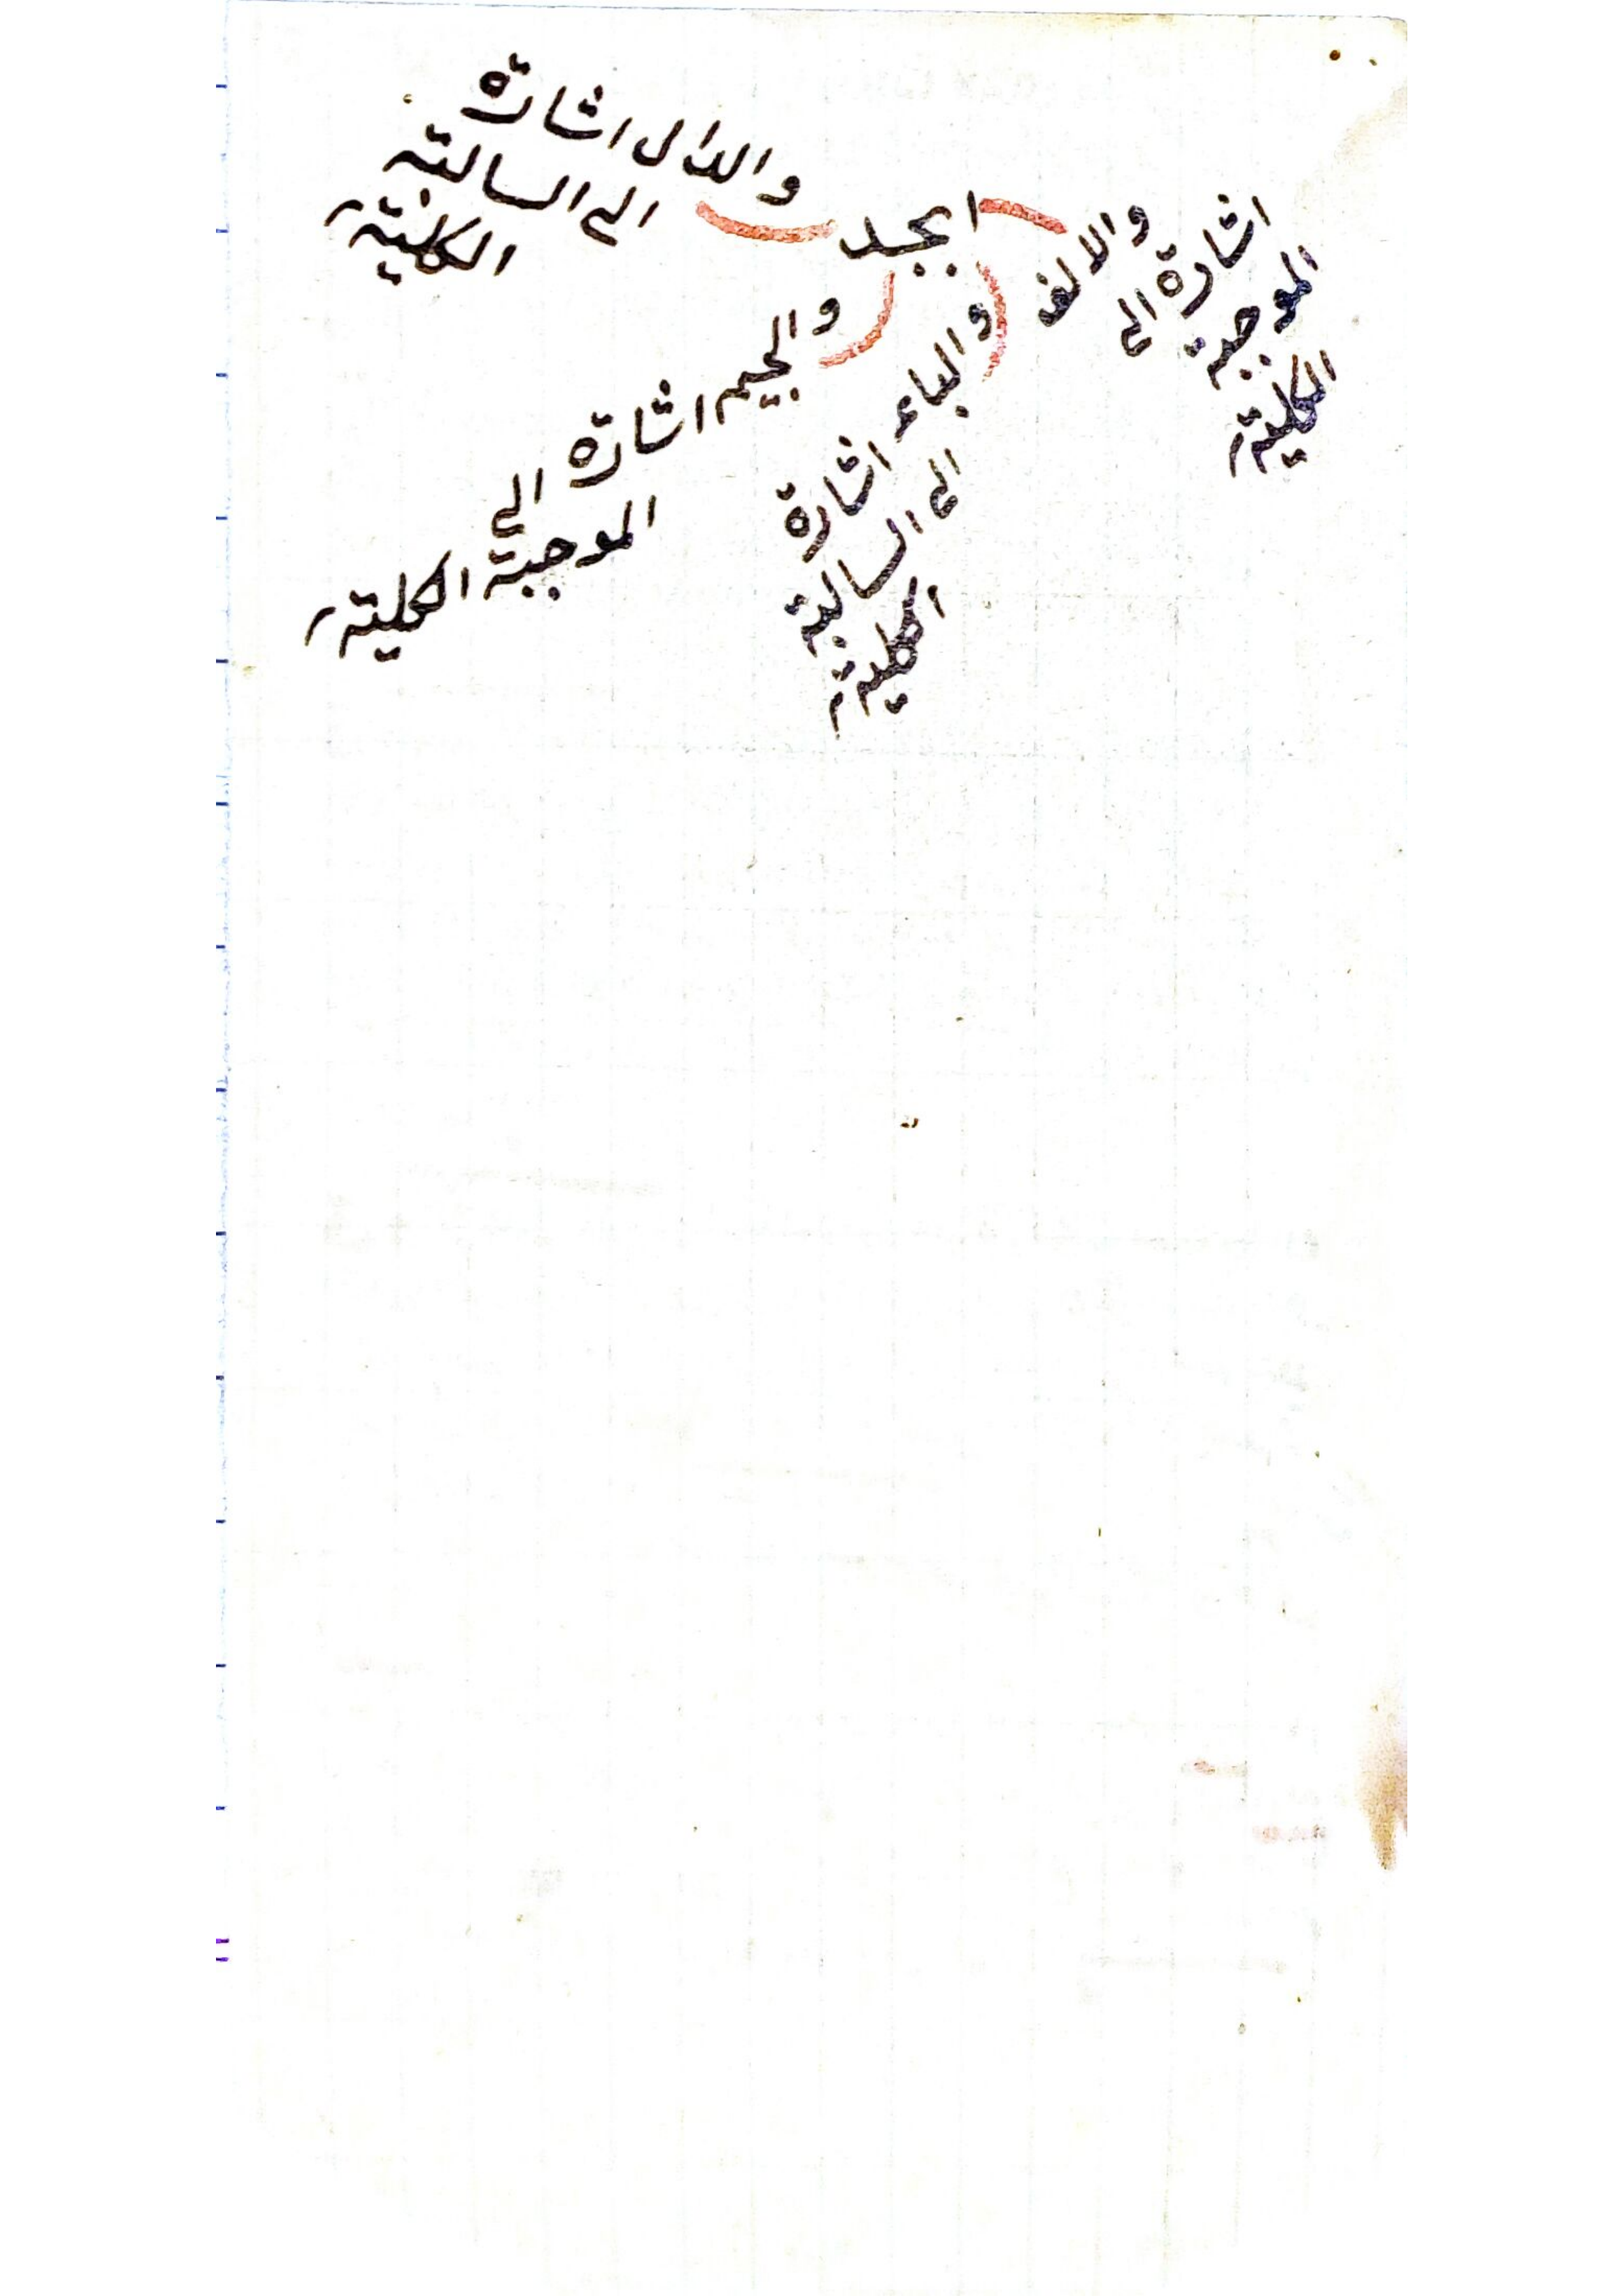 ابجد
والالف
اشارة الى
الموجبة
الكلية
والباء اشارة
الى السالبة
الكلية
والجيم اشارة الى
الموجبة الكلية
والدال اشارة
الى السالبة
الكلية